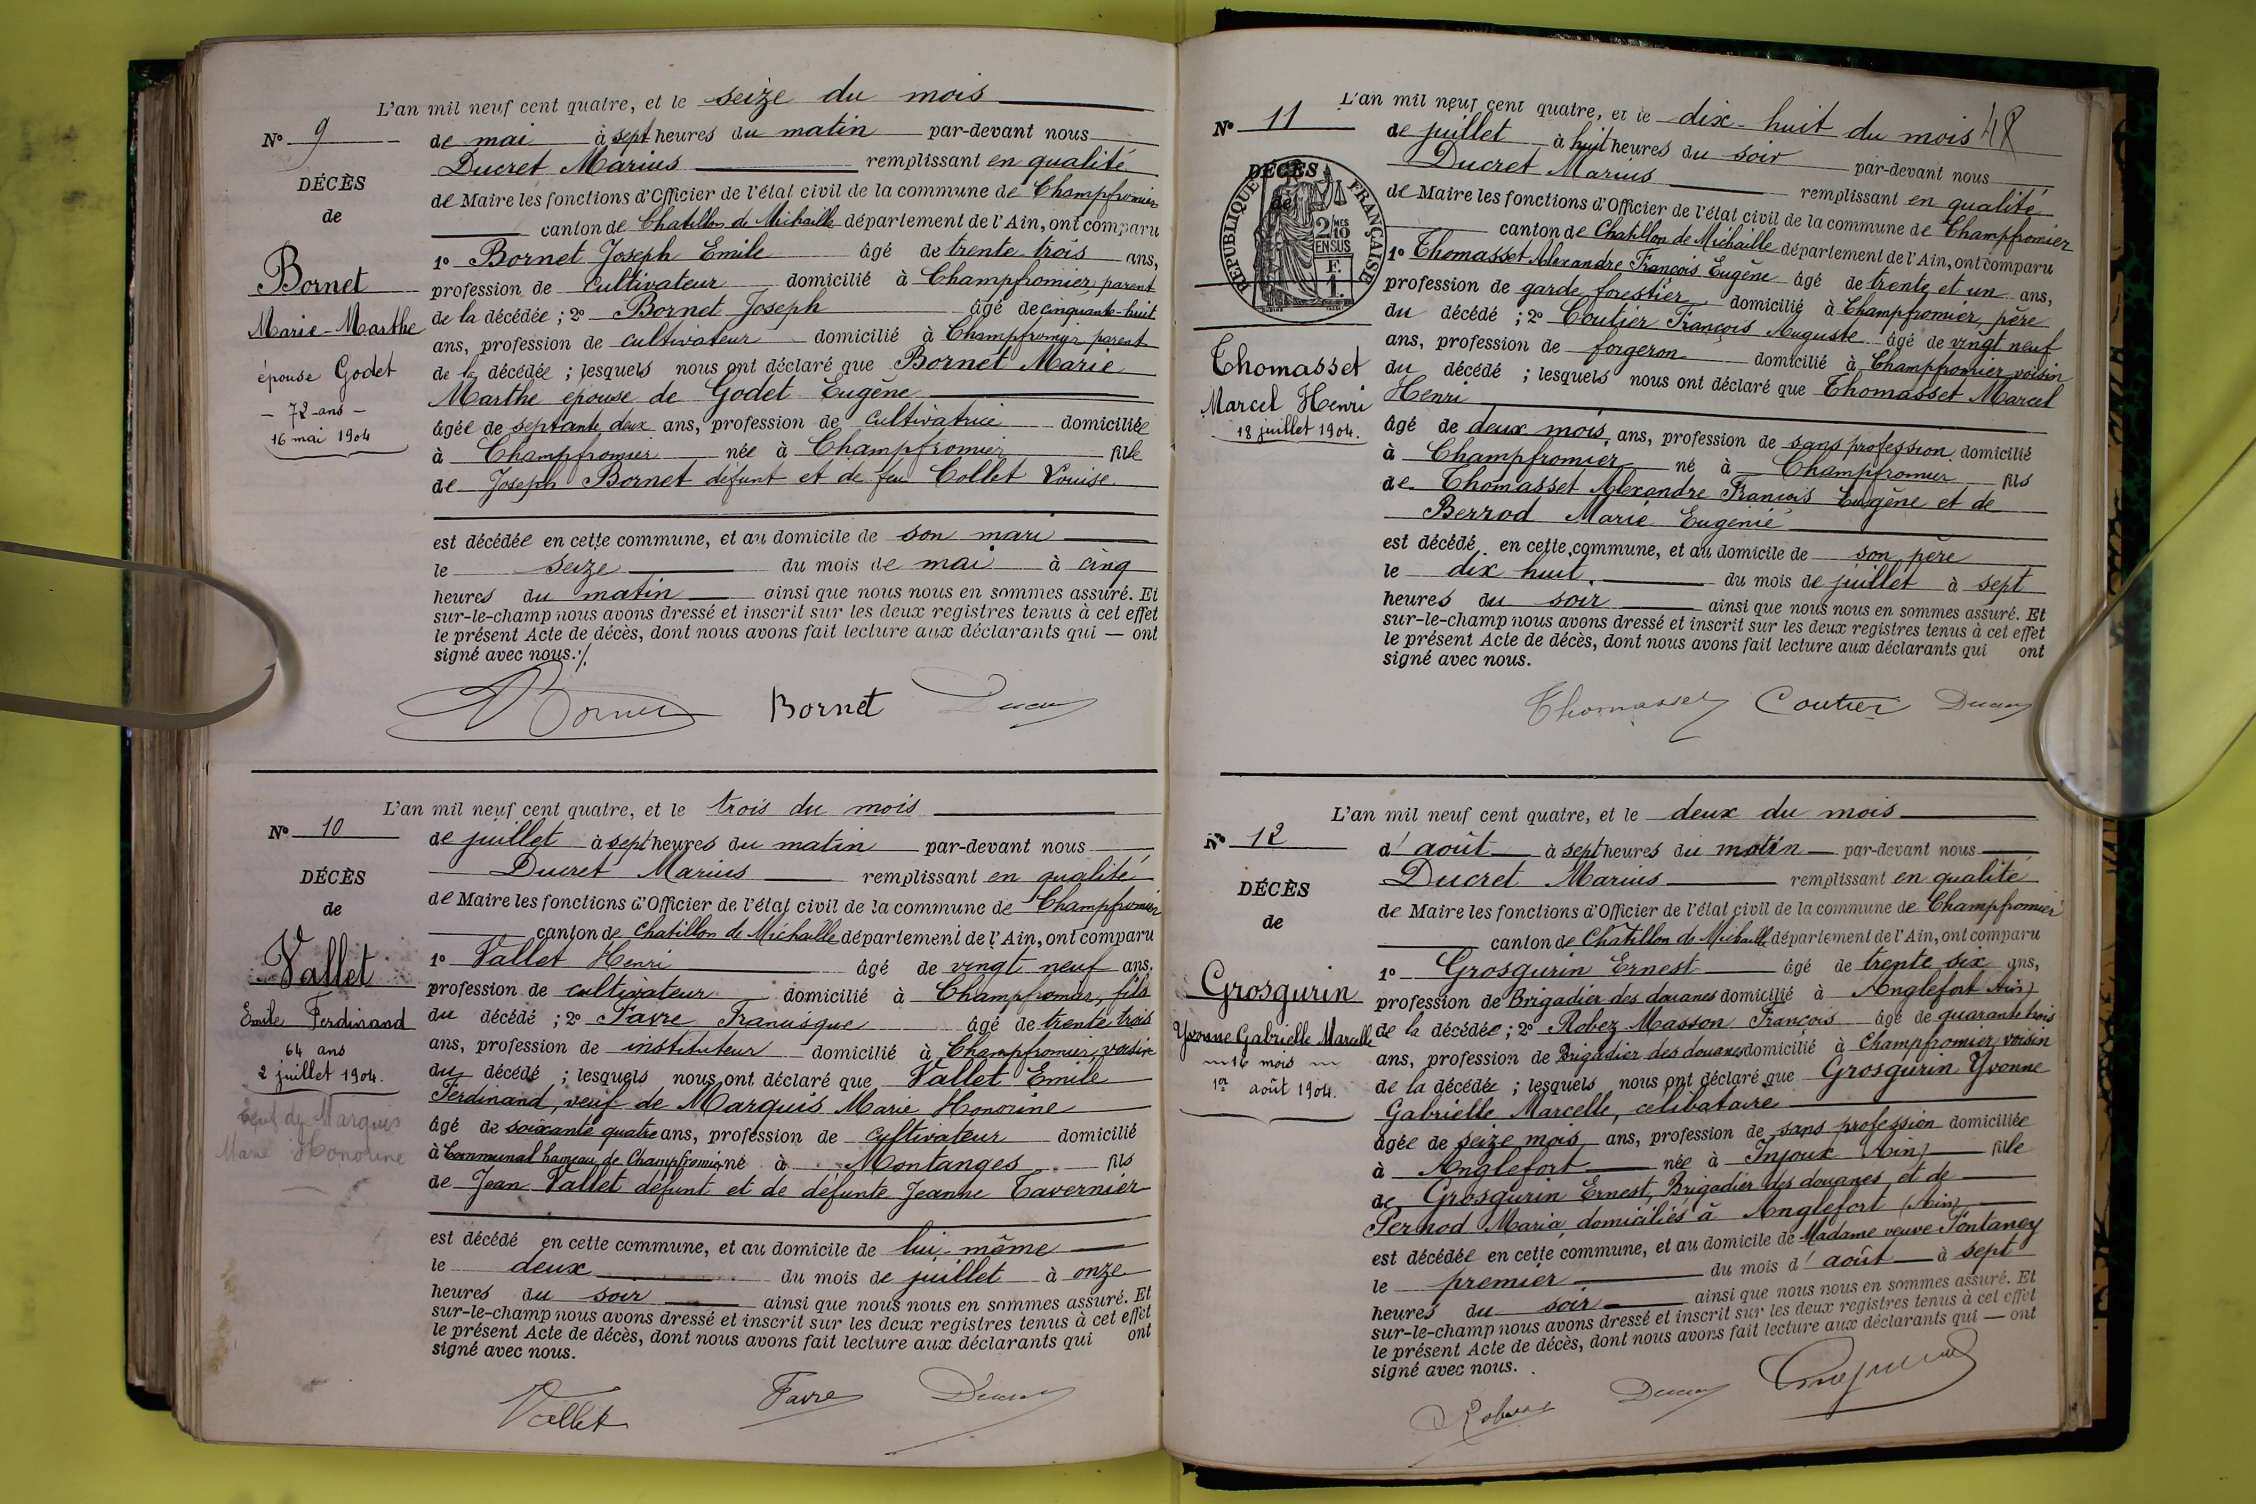 L'an mil neuf cent quatre, et le seize du mois
N° 9
de mai à sept heures du matin par-devant nous
Ducret Marius remplissant en qualité
DÉCÈS
de Maire les fonctions d'Officier de l'état civil de la commune de Champfromier
de
canton de Chatillon de Michaille département de l'Ain, ont comparu
1° Bornet Joseph Emile âgé de trente trois ans,
Bornet
profession de cultivateur domicilié à Champfromier, parent
Marie-Marthe
de la décédée ; 2° Bornet Joseph âgé de cinquante-huit
ans, profession de cultivateur domicilié à Champfromier parent
épouse Godet
de la décédée ; lesquels nous ont déclaré que Bornet Marie
- 72 ans -
Marthe épouse de Godet Eugène
16 mai 1904
âgée de septante deux ans, profession de cultivatrice domiciliée
à Champfromier née à Champfromier fille
de Joseph Bornet défunt et de feu Collet Louise
est décédée en cette commune, et au domicile de son mari
le seize du mois de mai à cinq
heures du matin ainsi que nous nous en sommes assuré. Et
sur-le-champ nous avons dressé et inscrit sur les deux registres tenus à cet effet
le présent Acte de décès, dont nous avons fait lecture aux déclarants qui — ont
signé avec nous./.
Bornet Bornet Ducret
L'an mil neuf cent quatre, et le trois du mois
N° 10
de juillet à sept heures du matin par-devant nous
Ducret Marius remplissant en qualité
DÉCÈS
de Maire les fonctions d'Officier de l'état civil de la commune de Champfromier
de
canton de Chatillon de Michaille département de l'Ain, ont comparu
Vallet
1° Vallet Henri âgé de vingt neuf ans,
profession de cultivateur domicilié à Champfromier, fils
Emile Ferdinand
du décédé ; 2° Favre Francisque âgé de trente trois
64 ans
ans, profession de instituteur domicilié à Champfromier, voisin
2 juillet 1904.
du décédé ; lesquels nous ont déclaré que Vallet Emile
Ferdinand, veuf de Marquis Marie Honorine
veuf de Marquis
Marie Honorine
âgé de soixante quatre ans, profession de cultivateur domicilié
à Communal hameau de Champfromier né à Montanges fils
de Jean Vallet défunt et de défunte Jeanne Tavernier
est décédé en cette commune, et au domicile de lui-même
le deux du mois de juillet à onze
heures du soir ainsi que nous nous en sommes assuré. Et
sur-le-champ nous avons dressé et inscrit sur les deux registres tenus à cet effet
le présent Acte de décès, dont nous avons fait lecture aux déclarants qui ont
signé avec nous.
Vallet Favre Ducret
L'an mil neuf cent quatre, et le dix-huit du mois 48
N° 11
de juillet à huit heures du soir par-devant nous
Ducret Marius remplissant en qualité
DÉCÈS
de
RÉPUBLIQUE FRANÇAISE
2/10 MES
EN SUS
F.
1.
de Maire les fonctions d'Officier de l'état civil de la commune de Champfromier
canton de Chatillon de Michaille département de l'Ain, ont comparu
1° Thomasset Alexandre François Eugène âgé de trente et un ans,
profession de garde forestier domicilié à Champfromier, père
du décédé ; 2° Coutier François Auguste âgé de vingt neuf
ans, profession de forgeron domicilié à Champfromier voisin
Thomasset
du décédé ; lesquels nous ont déclaré que Thomasset Marcel
Marcel Henri
Henri
18 juillet 1904.
âgé de deux mois, ans, profession de sans profession domicilié
à Champfromier né à Champfromier fils
de Thomasset Alexandre François Eugène et de
Berrod Marie Eugenie
est décédé en cette commune, et au domicile de son père
le dix huit. du mois de juillet à sept
heures du soir ainsi que nous nous en sommes assuré. Et
sur-le-champ nous avons dressé et inscrit sur les deux registres tenus à cet effet
le présent Acte de décès, dont nous avons fait lecture aux déclarants qui ont
signé avec nous.
Thomasset Coutier Ducret
L'an mil neuf cent quatre, et le deux du mois
N° 12
d'août à sept heures du matin par-devant nous
Ducret Marius remplissant en qualité
DÉCÈS
de Maire les fonctions d'Officier de l'état civil de la commune de Champfromier
de
canton de Chatillon de Michaille département de l'Ain, ont comparu
1° Grosgurin Ernest âgé de trente six ans,
Grosgurin
profession de Brigadier des douanes domicilié à Anglefort Ain)
Yvonne Gabrielle Marcelle
de la décédée ; 2° Robez Masson François âgé de quarante trois
16 mois
ans, profession de Brigadier des douanes domicilié à Champfromier voisin
1er août 1904.
de la décédée ; lesquels nous ont déclaré que Grosgurin Yvonne
Gabrielle Marcelle, celibataire
âgée de seize mois ans, profession de sans profession domiciliée
à Anglefort née à Injoux Ain) fille
de Grosgurin Ernest, Brigadier des douanes et de
Pernod Maria, domiciliés à Anglefort (Ain)
est décédée en cette commune, et au domicile de Madame veuve Fontaney
le premier du mois d'août à sept
heures du soir ainsi que nous nous en sommes assuré. Et
sur-le-champ nous avons dressé et inscrit sur les deux registres tenus à cet effet
le présent Acte de décès, dont nous avons fait lecture aux déclarants qui — ont
signé avec nous.
Ducret